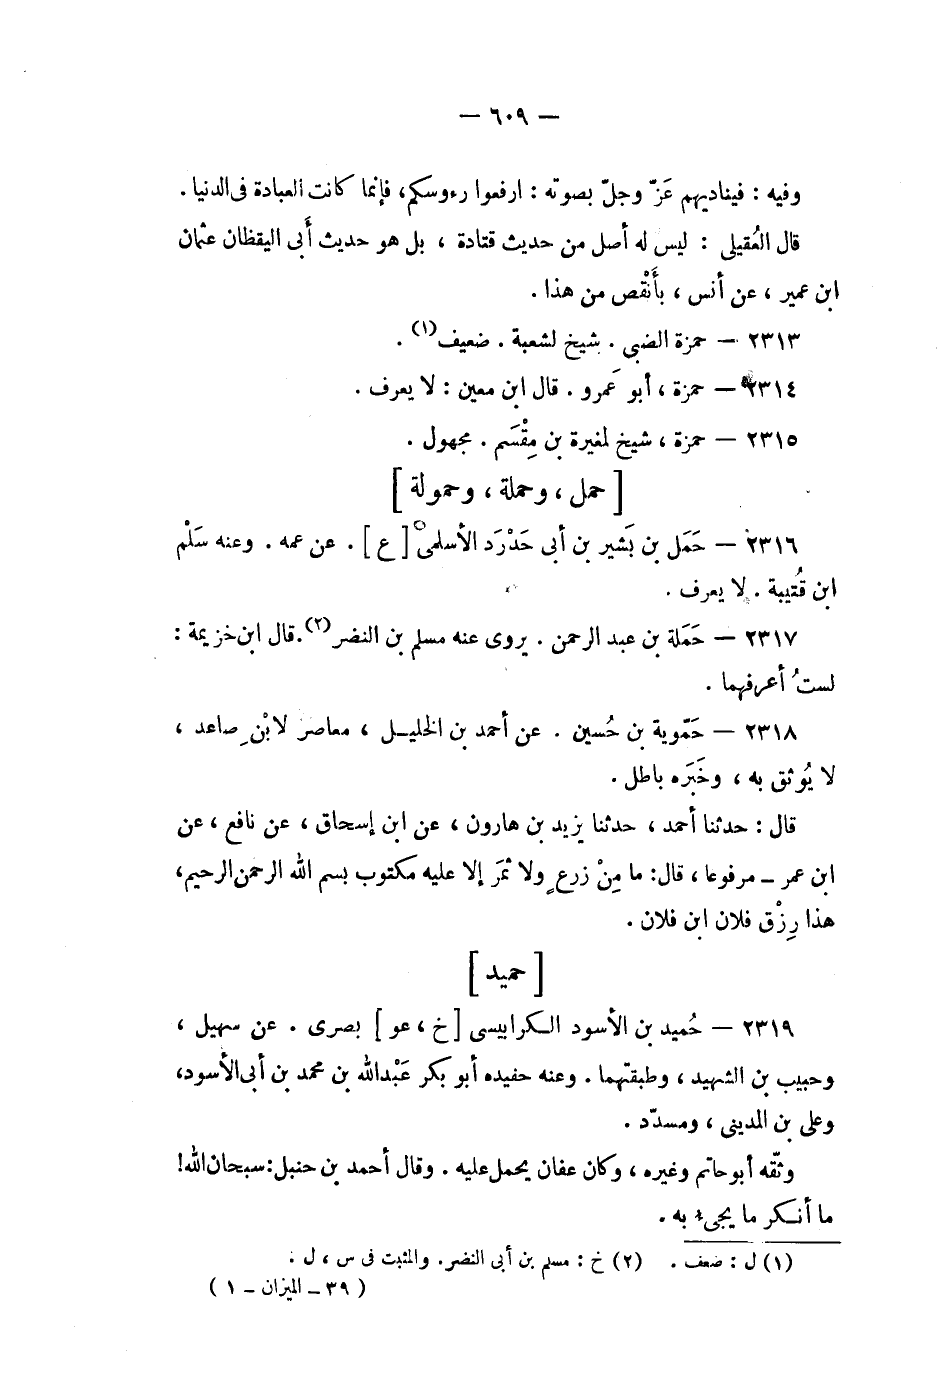 — ٦٠٩ —
وفيه : فيناديهم عَزّ وجلّ بصوته : ارفعوا رءوسكم، فإنما كانت العبادة فى الدنيا .
قال العُقيلى : ليس له أصل من حديث قتادة ، بل هو حديث أَبى اليقظان عثمان
ابن عمير ، عن أنس ، بأَنْقص من هذا .
٢٣١٣ – حمزة الضبى . شيخ لشعبة . ضعيف(١) .
٢٣١٤ – حمزة ، أبو عَمرو . قال ابن معين : لا يعرف .
٢٣١٥ – حمزة ، شيخ لمغيرة بن مِقْسَم . مجهول .
[ حمل ، وحملة ، وحمولة ]
٢٣١٦ – حَمَل بن بَشير بن أبى حَدْرَد الأسلمى [ ع ] . عن عمه . وعنه سَلْم
ابن قُتيبة . لا يعرف .
٢٣١٧ – حَمَلة بن عبد الرحمن . يروى عنه مسلم بن النضر(٢). قال ابن خزيمة :
لستُ أعرفهما .
٢٣١٨ – حَمّوية بن حُسين . عن أحمد بن الخليل ، معاصر لابْنِ صاعد ،
لا يُوثق به ، وخَبَره باطل .
قال : حدثنا أحمد ، حدثنا يزيد بن هارون ، عن ابن إسحاق ، عن نافع ، عن
ابن عمر – مرفوعا ، قال: ما مِنْ زرعٍ ولا ثمَر إلا عليه مكتوب بسم الله الرحمن الرحيم،
هذا رِزْق فلان ابن فلان .
[ حميد ]
٢٣١٩ – حُميد بن الأسود الكرابيسى [ خ ، عو ] بصرى . عن سهيل ،
وحبيب بن الشهيد ، وطبقتهما . وعنه حفيده أبو بكر عَبْدالله بن محمد بن أبى الأسود،
وعلى بن المدينى ، ومسدّد .
وثّقه أبو حاتم وغيره ، وكان عفان يحمل عليه . وقال أحمد بن حنبل: سبحان الله!
ما أنكر ما يجىء به .
(١) ل : ضعف . (٢) خ : مسلم بن أبى النضر. والمثبت فى س ، ل .
( ٣٩ – الميزان – ١ )